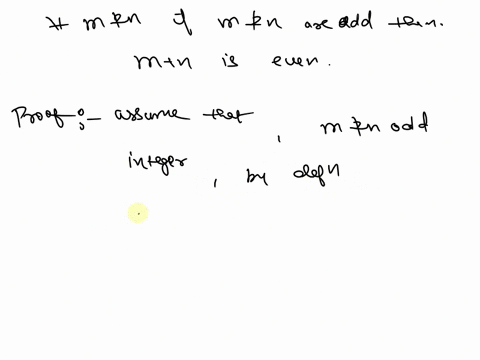 # m & n if m & n are odd then.
m+n is even.
Proof :– assume that , m & n odd
integer , by defn